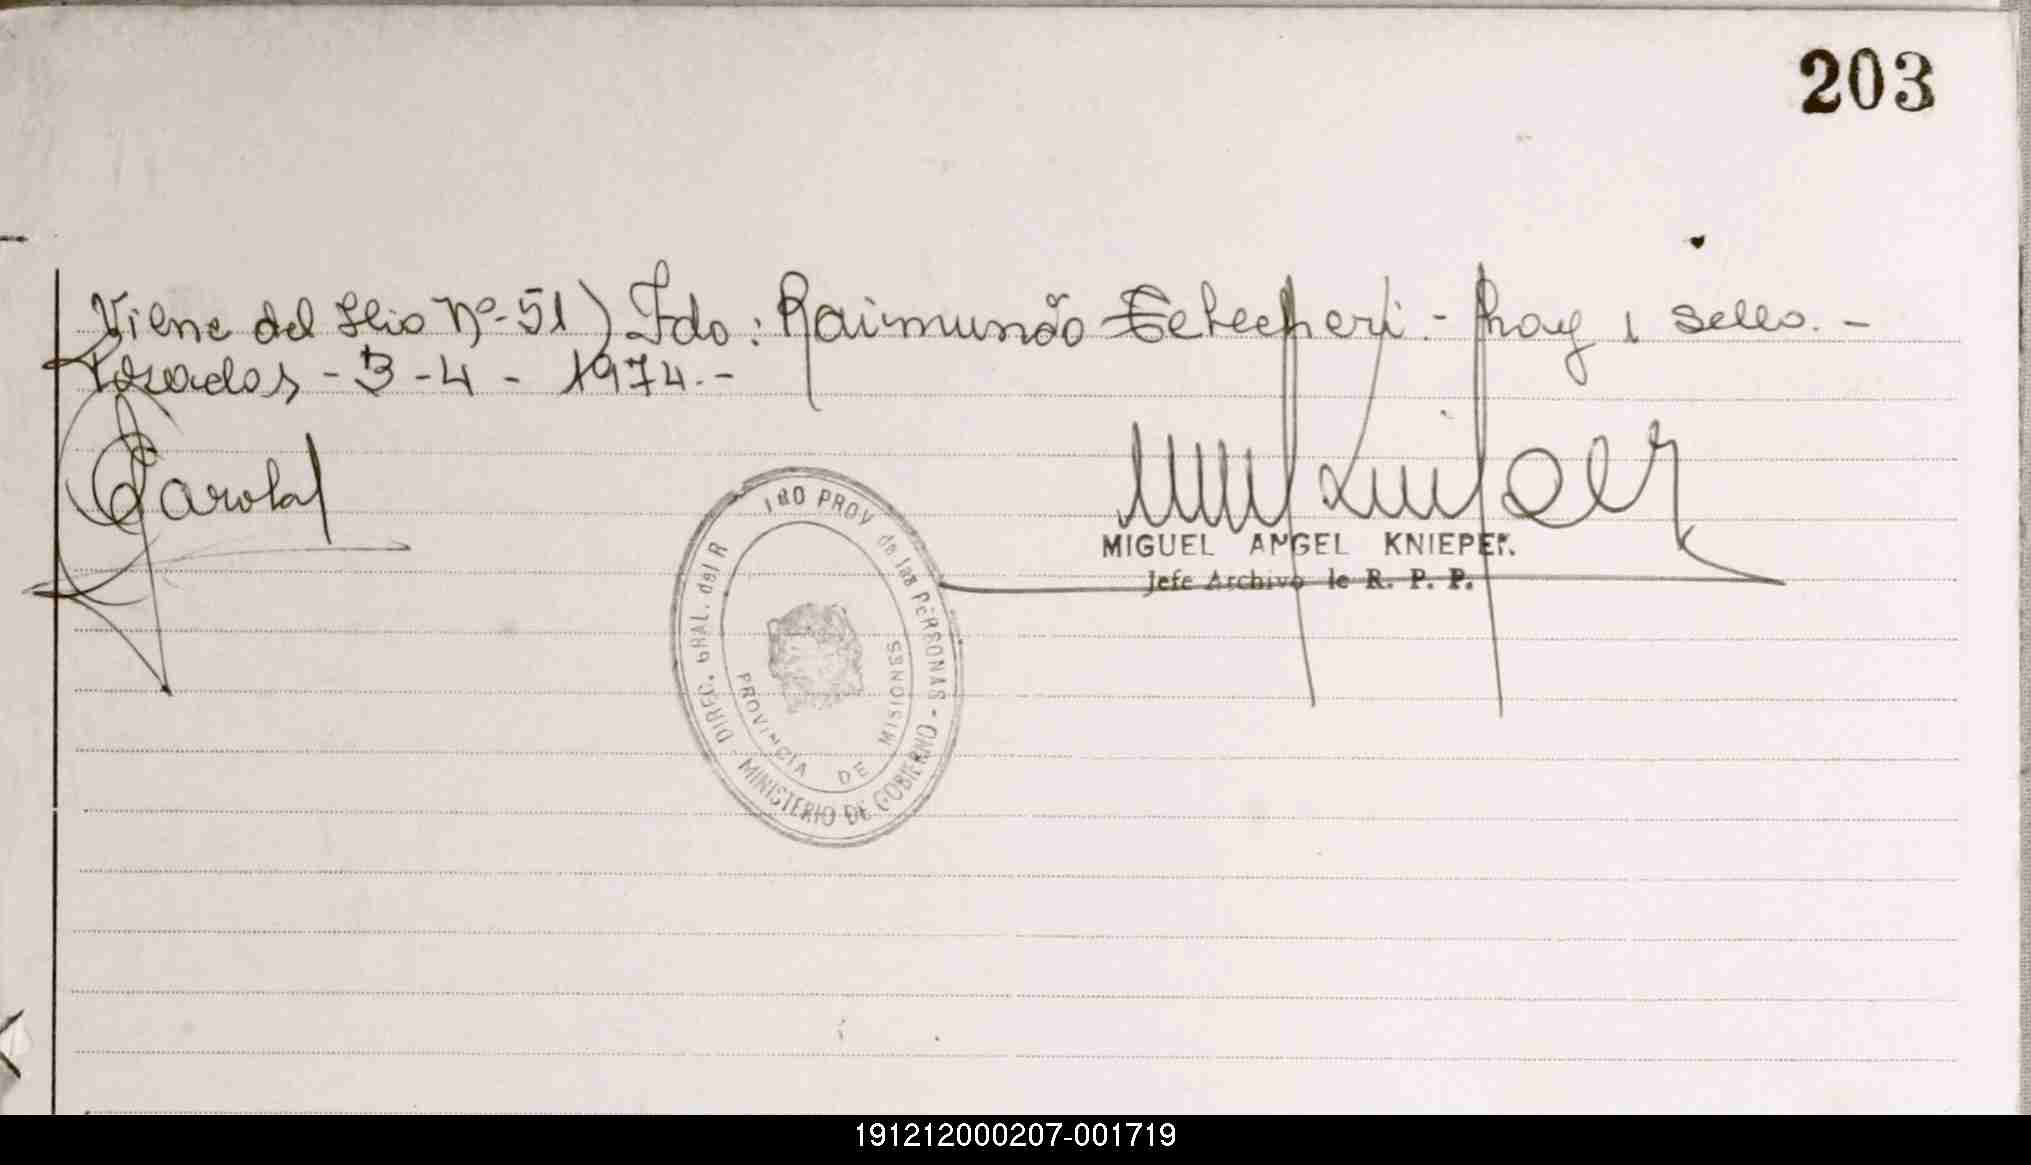 203
Viene del flio Nº-51) Fdo: Raimundo Etchecheri.- hay 1 sello.-
Posadas, - 3 - 4 - 1974.-
MIGUEL ANGEL KNIEPER.
Jefe Archivo de R. P. P.
DIREC. GRAL. del R IRO PROV de las PERSONAS - MINISTERIO DE GOBIERNO -
PROVINCIA DE MISIONES
191212000207-001719